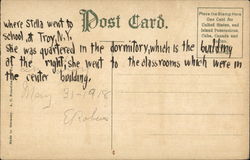 Post Card.
where Stella went to
school, at Troy, N.Y.
she was quartered in the dormitory, which is the building
at the right; she went to the classrooms which were in
the center building.
May 31-1918
Place the Stamp Here
One Cent for
United States, and
Island Possessions,
Cuba, Canada and